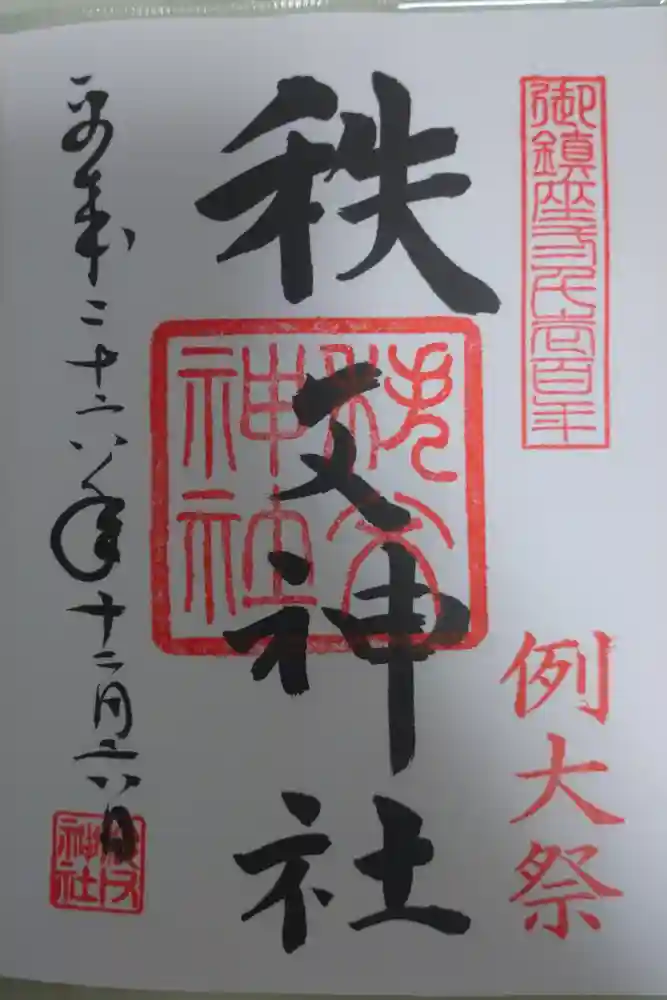 御鎮座弐千壱百年
例大祭
秩父神社
秩父
神社
平成二十六年十二月六日
秩父
神社